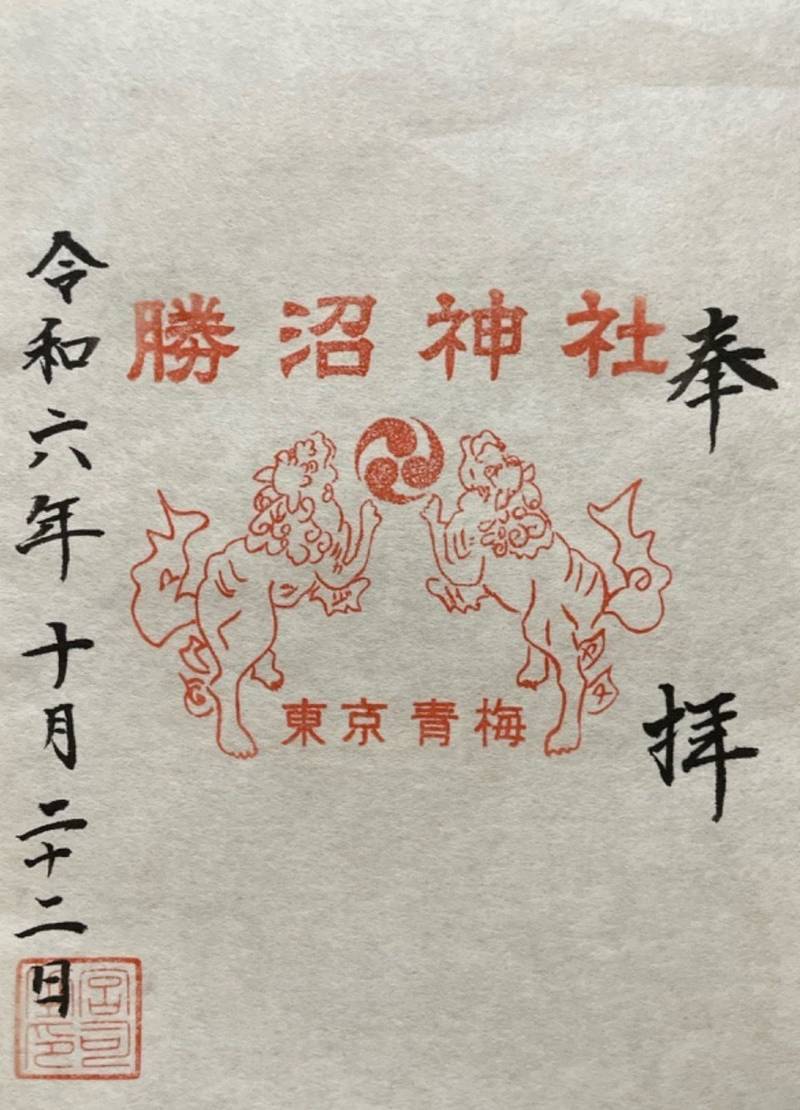 奉拝
勝沼神社
東京青梅
令和六年十月二十二日